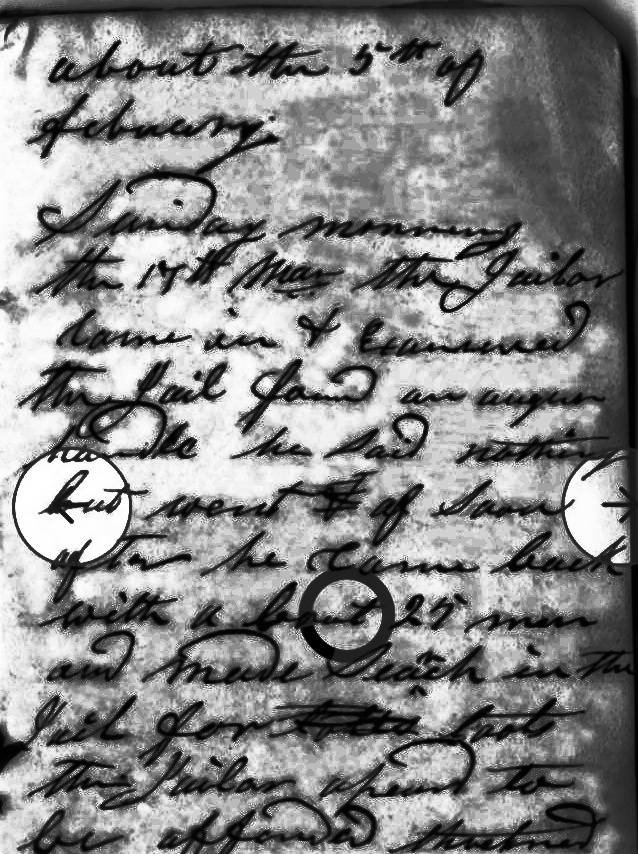 about the 5th of
febuary
Sunday morning
the 17th Mar the Jailor
Came in & Examened
the Jail found an auger
handle he said nothing
but went of Soon
after he Came back
with a bout 25 men
and made Seach in the
Jail for tools
the Jailor apeard to
be